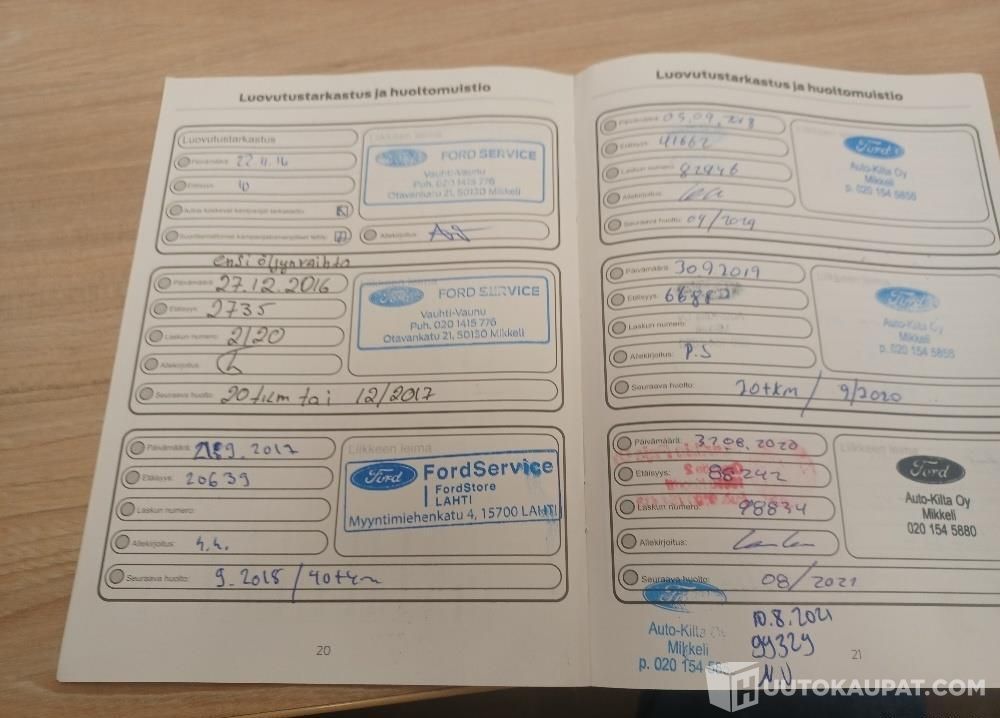 Luovutustarkastus ja huoltomuistio
Luovutustarkastus
Liikkeen leima
Päivämäärä:
Etäisyys: 10
Ford FORD SERVICE
Vauhti-Vaunu
Puh. 020 1415 776
Otavankatu 21, 50130 Mikkeli
Allekirjoitus:
ensi öljynvaihto
Päivämäärä: 27.12.2016
Etäisyys: 2735
Laskun numero: 2/20
Allekirjoitus:
Seuraava huolto: 20tkm tai 12/2017
Ford FORD SERVICE
Vauhti-Vaunu
Puh. 020 1415 776
Otavankatu 21, 50130 Mikkeli
Päivämäärä: 2017
Etäisyys: 20639
Laskun numero:
Allekirjoitus:
Seuraava huolto: 9.2018 / 40tkm
Liikkeen leima
Ford FordService
FordStore
LAHTI
Myyntimiehenkatu 4, 15700 LAHTI
20
Luovutustarkastus ja huoltomuistio
Päivämäärä:
Etäisyys: 41662
Laskun numero: 82946
Allekirjoitus:
Seuraava huolto: 09/2019
Ford
Auto-Kilta Oy
Mikkeli
p. 020 154 5856
Päivämäärä: 30.9.2019
Etäisyys:
Laskun numero:
Allekirjoitus: P.S
Seuraava huolto: 20tkm / 9/2020
Ford
Auto-Kilta Oy
Mikkeli
p. 020 154 5856
Päivämäärä: 08.2020
Etäisyys: 88242
Laskun numero: 98834
Allekirjoitus:
Seuraava huolto: 08/2021
Liikkeen leima
Ford
Auto-Kilta Oy
Mikkeli
020 154 5880
Ford
Auto-Kilta Oy
Mikkeli
p. 020 154
10.8.2021
99329
21
HUUTOKAUPAT.COM